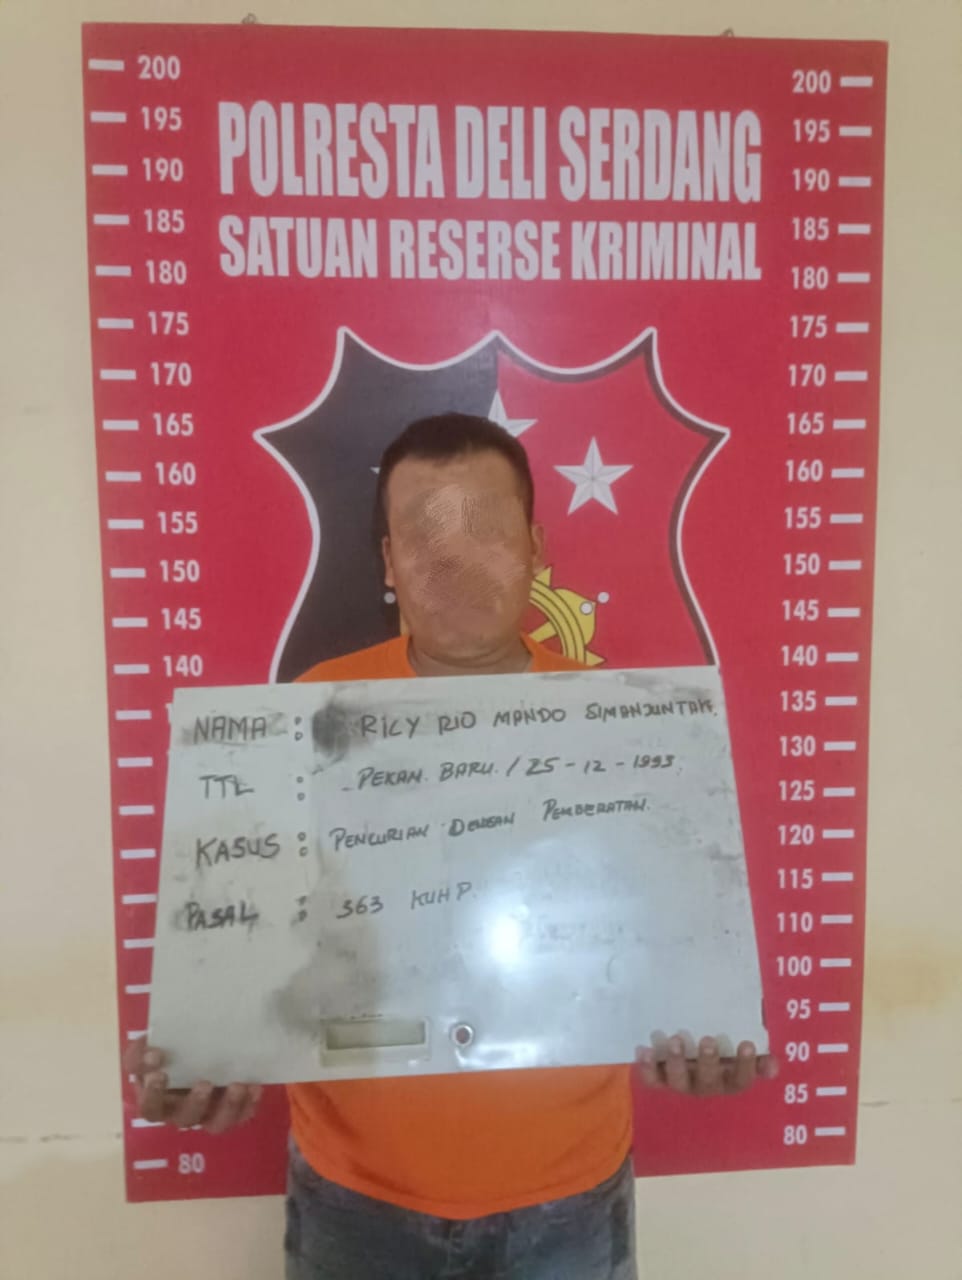 POLRESTA DELI SERDANG
SATUAN RESERSE KRIMINAL
200 200
195 195
190 190
185 185
180 180
175 175
170 170
165 165
160 160
155 155
150 150
145 145
140 140
135
130
125
120
115
110
100
95
90
85
80 80
NAMA : RICY RIO MANDO SIMANJUNTAK.
TTL : PEKAN. BARU. / 25 - 12 - 1993.
KASUS : PENCURIAN DENGAN PEMBERATAN.
PASAL : 363 KUHP.